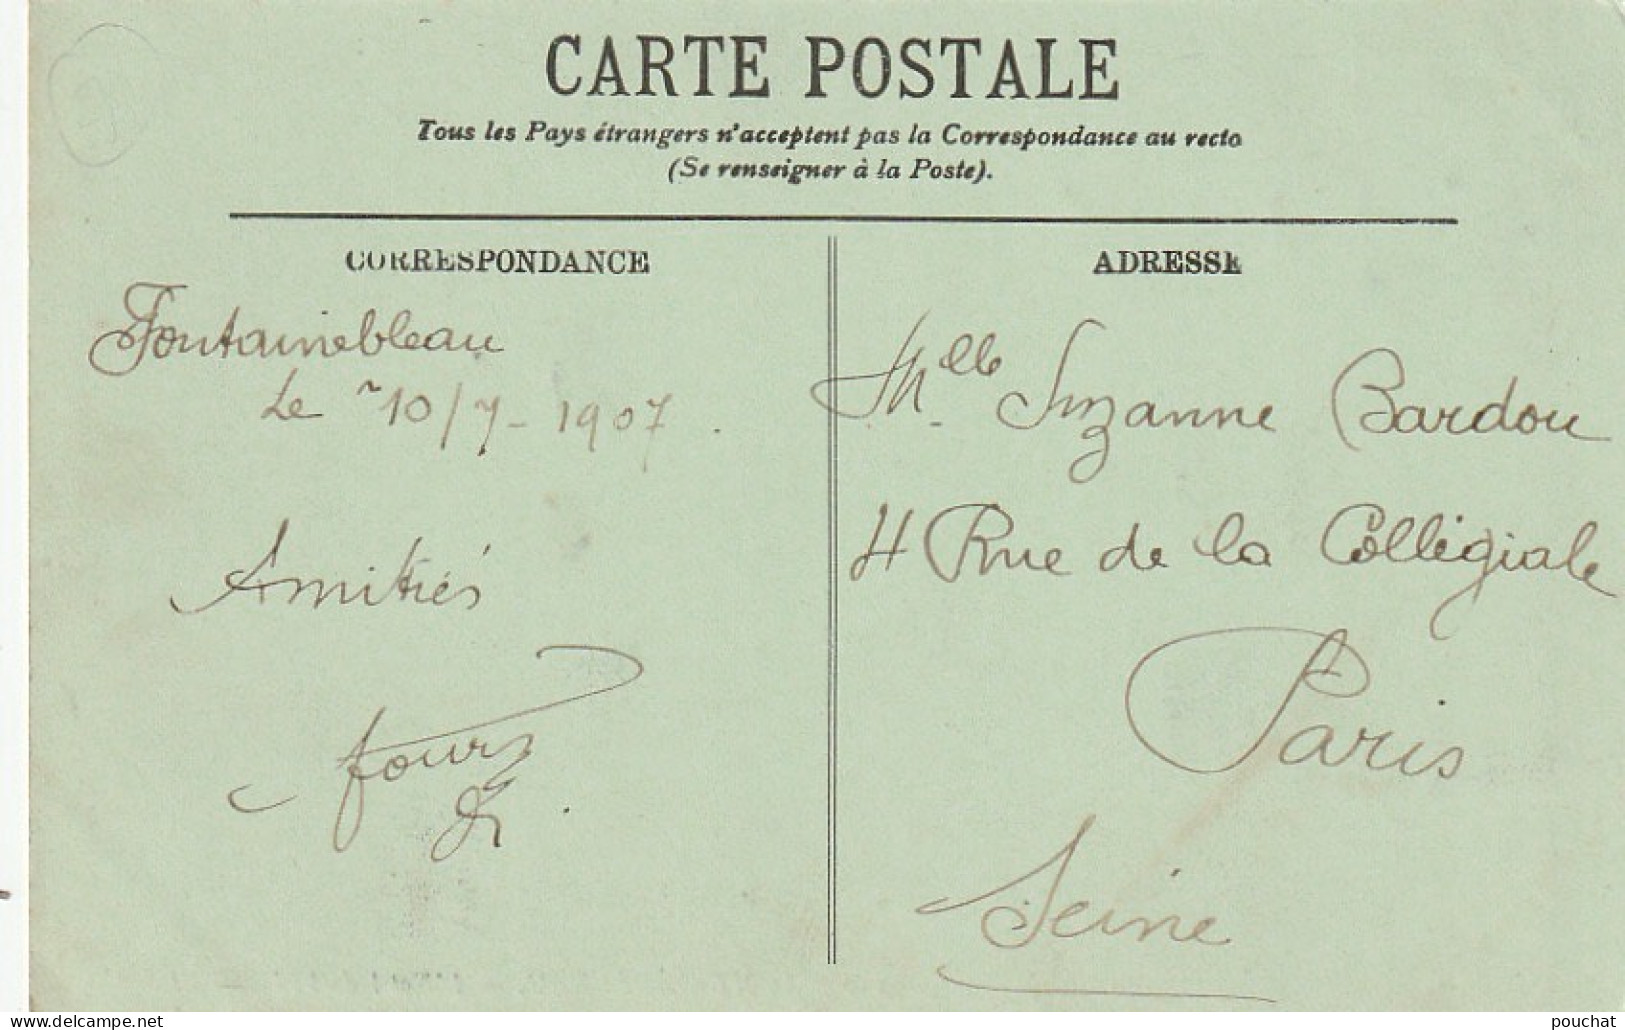 CARTE POSTALE
Tous les Pays étrangers n'acceptent pas la Correspondance au recto
(Se renseigner à la Poste).
CORRESPONDANCE
ADRESSE
Fontainebleau
Le 10/7-1907.
Amitiés
Mlle Suzanne Bardou
4 Rue de la Collégiale
Paris
Seine
www.delcampe.net
pouchat